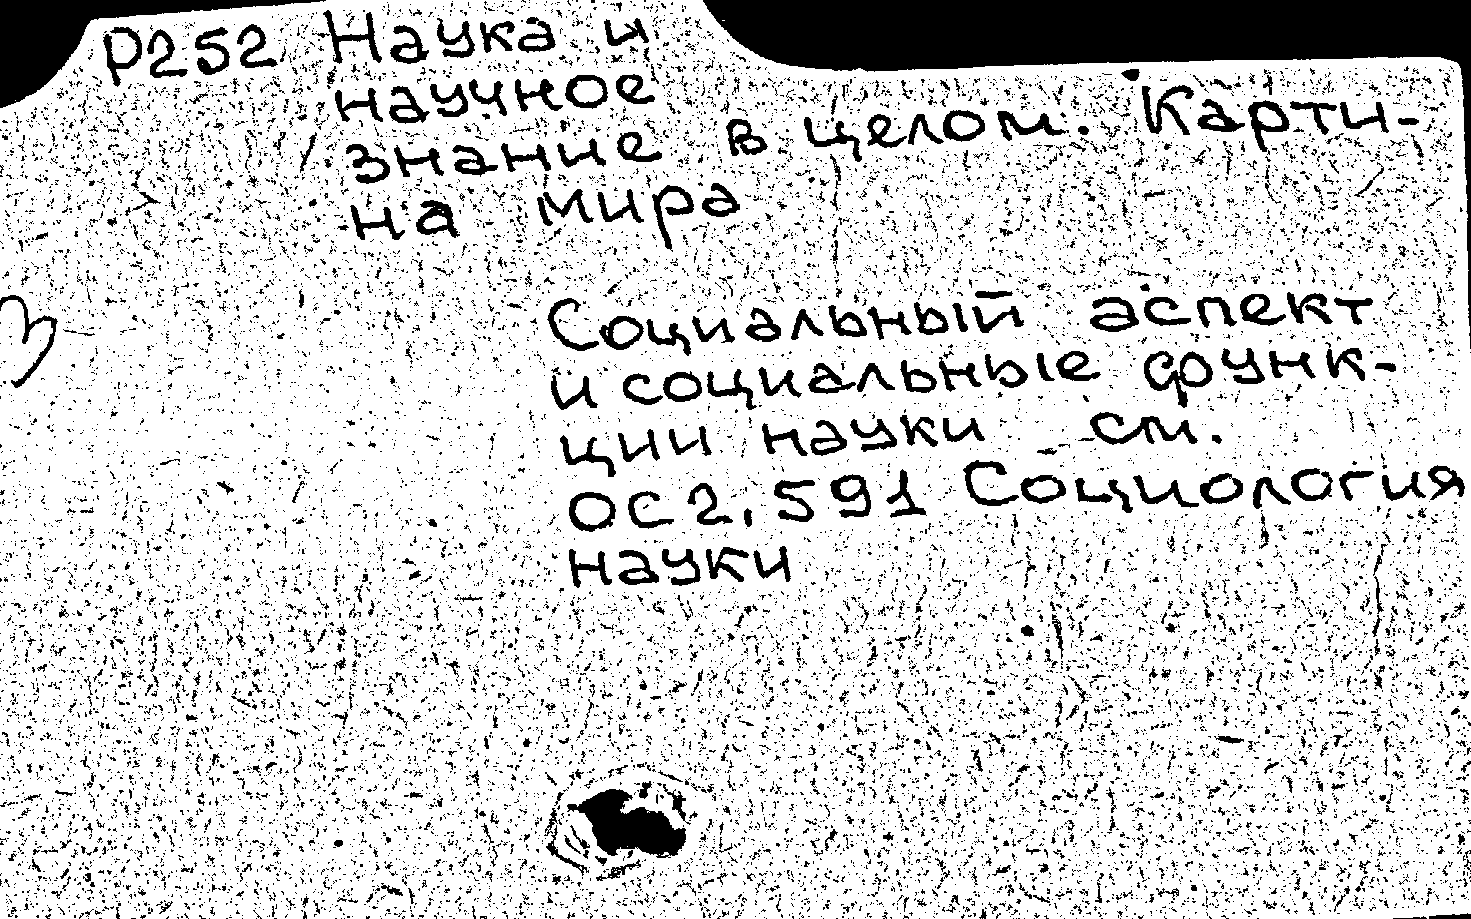 Р252 Наука и
научное
знание в целом. Карти-
на мира
Социальный аспект
и социальные функ-
ции науки см.
ОС2,591 Социология
науки